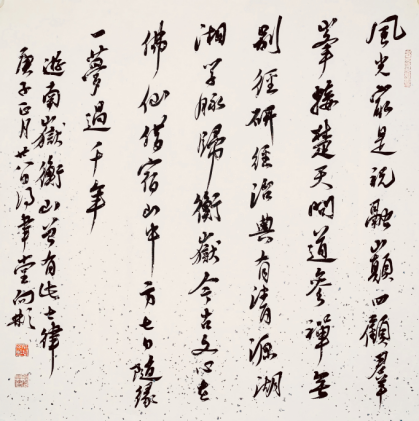 風光最是祝融巔四顧群
峯接楚天問道參禪無
別徑研經治典有清源湖
湘学脉歸衡嶽今古文心在
佛仙借宿山中方七日隨緣
一夢過千年
遊南嶽衡山曾有此七律
庚子正月廿韋堂向彬